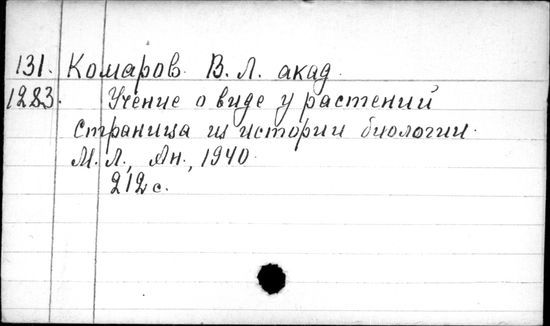 131. Комаров. В. Л. акад.
1283. Учение о виде у растений
Страница из истории биологии.
М. Л., Ан., 1940.
212 с.